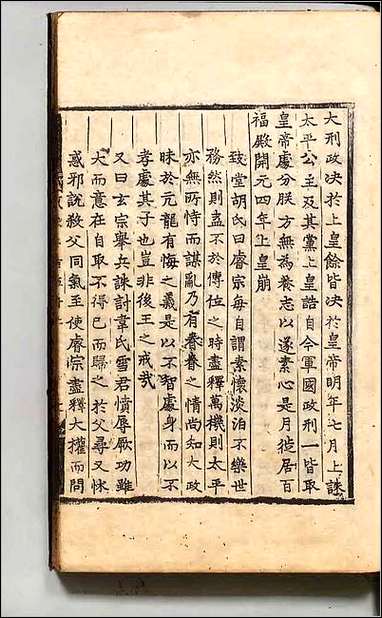 大刑政决於上皇餘皆决於皇帝明年七月上誅
太平公主及其黨上皇誥自今軍國政刑一皆取
皇帝處分朕方無為養志以遂素心是月徙居百
福殿開元四年上皇崩
致堂胡氏曰睿宗每自謂素懷淡泊不樂世
務然則盍不於傳位之時盡釋萬機則太平
亦無所恃而謀亂乃有眷眷之情尚知大政
昧於亢龍有悔之義是以不智處身而以不
孝處其子也豈非後王之戒哉
又曰玄宗舉兵誅討韋氏雪君憤辱厥功雖
大而意在自取不得已而歸之於父尋又怵
惑邪說殺父同氣至使睿宗盡釋大權而問